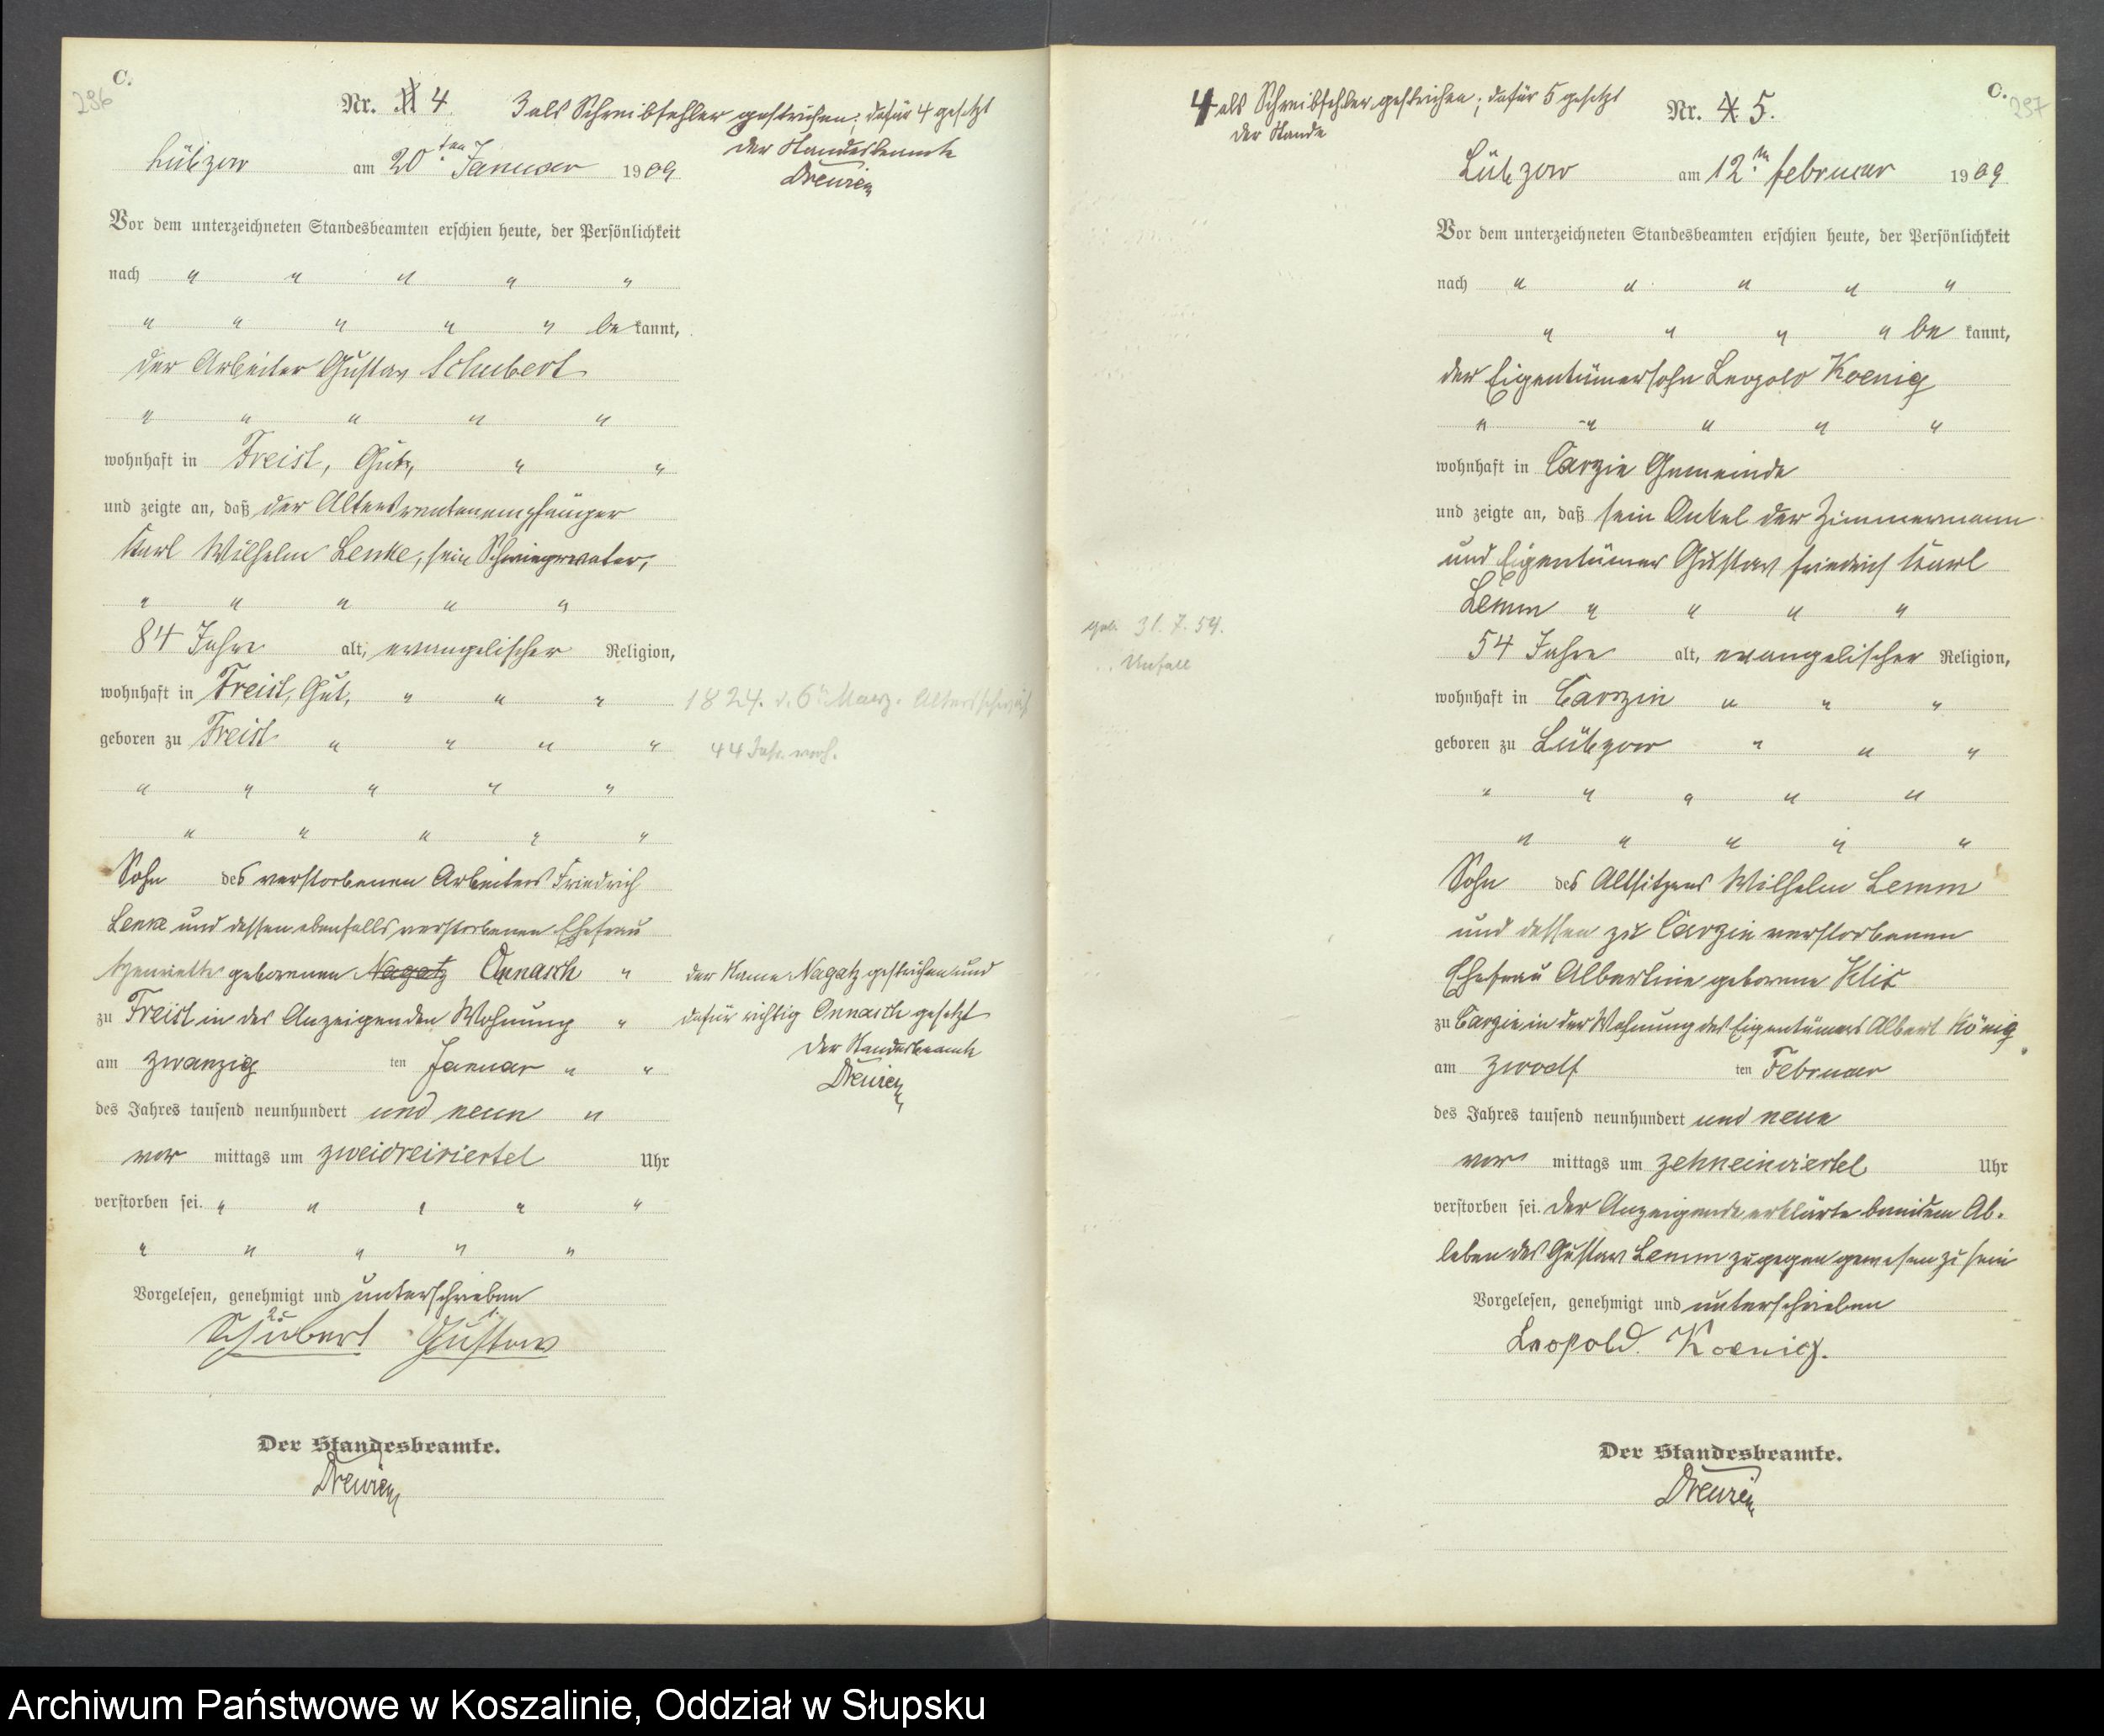 C.
296
Nr. 4
3 als Schreibfehler gestrichen; dafür 4 gesetzt
Der Standesbeamte
Drewien
Lübzow am 20ten Januar 1909
Vor dem unterzeichneten Standesbeamten erschien heute, der Persönlichkeit
nach " " " " "
" " " " " be kannt,
der Arbeiter Gustav Schubert
" " " " "
wohnhaft in Freist, Gut, " "
und zeigte an, daß der Altersrentenempfänger
Karl Wilhelm Lenke, sein Schwiegervater,
" " " " "
84 Jahre alt, evangelischer Religion,
wohnhaft in Freist, Gut, " " "
1824. d. 6. Maerz. Altersschwäche
geboren zu Freist " " " "
44 Jahr. verh.
" " " " "
" " " " "
Sohn des verstorbenen Arbeiters Friedrich
Lenke und dessen ebenfalls verstorbenen Ehefrau
Henriette geborenen Nagatz Onnasch "
der Name Nagatz gestrichen und
dafür richtig Onnasch gesetzt
Der Standesbeamte
Drewien
zu Freist in des Anzeigenden Wohnung "
am zwanzig ten Januar " "
des Jahres tausend neunhundert und neun "
vor mittags um zweidreiviertel Uhr
verstorben sei. " " " " "
" " " " "
Vorgelesen, genehmigt und unterschrieben
Schubert Gustav
Der Standesbeamte.
Drewien
4 als Schreibfehler gestrichen; dafür 5 gesetzt
Der Stande
C.
297
Nr. 4 5.
Lübzow am 12tn Februar 1909
Vor dem unterzeichneten Standesbeamten erschien heute, der Persönlichkeit
nach " " " " "
" " " " be kannt,
der Eigentümersohn Leopold Koenig
" " " " "
wohnhaft in Carzin Gemeinde
und zeigte an, daß sein Onkel der Zimmermann
und Eigentümer Gustav Friedrich Karl
Lemm " " " "
geb. 31. 7. 54.
Unfall
54 Jahre alt, evangelischer Religion,
wohnhaft in Carzin " " "
geboren zu Lübzow " " "
" " " " "
" " " " "
Sohn des Altsitzers Wilhelm Lemm
und dessen zu Carzin verstorbenen
Ehefrau Albertine geborene Klix
zu Carzin in der Wohnung des Eigentümers Albert König
am zwoelf ten Februar
des Jahres tausend neunhundert und neun
vor mittags um zehneinviertel Uhr
verstorben sei. Der Anzeigende erklärte bei dem Ab-
leben des Gustav Lemm zugegen gewesen zu sein
Vorgelesen, genehmigt und unterschrieben
Leopold Koenig.
Der Standesbeamte.
Drewien
Archiwum Państwowe w Koszalinie, Oddział w Słupsku